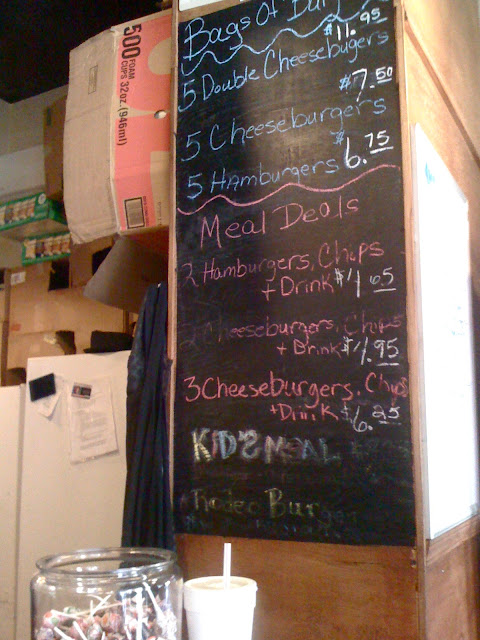 500
FOAM
CUPS 32oz. (946ml)
Bags Of Bur
$11.95
5 Double Cheeseburgers
$7.50
5 Cheeseburgers
$6.75
5 Hamburgers
Meal Deals
2 Hamburgers, Chips
+ Drink $4.65
2 Cheeseburgers, Chips
+ Drink $4.95
3 Cheeseburgers, Chips
+ Drink $6.25
KID'S MEAL
Rodeo Burger